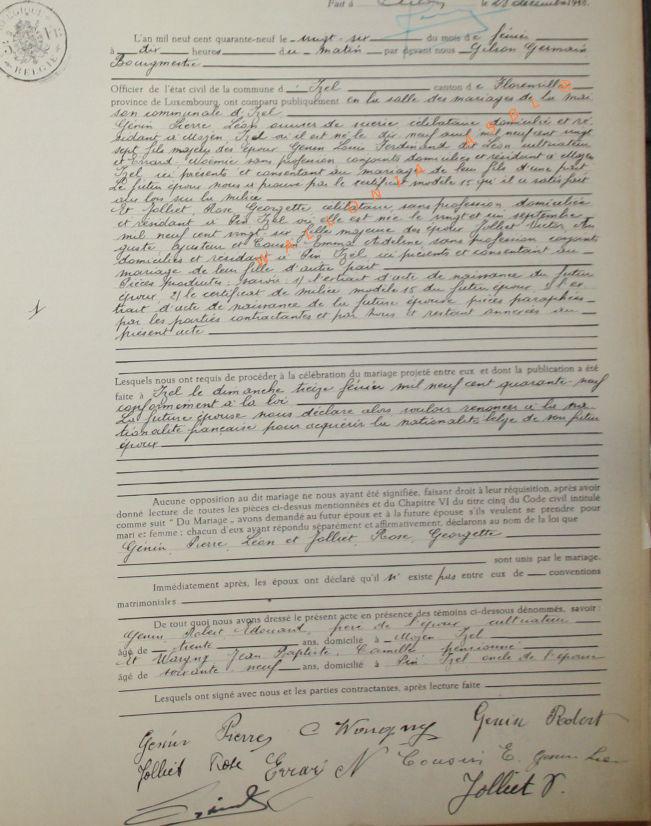 Fait à le 28 décembre 19
BELGIQUE
BELGIE
L'an mil neuf cent quarante-neuf le vingt-six du mois de février
à dix heures du matin par devant nous Gilson Germain
Bourgmestre
Officier de l'état civil de la commune d'Izel canton de Florenville
province de Luxembourg, ont comparu publiquement en la salle des mariages de la mai
son communale d'Izel
Génin Pierre Léon ouvrier de scierie célibataire domicilié et ré
sidant à Moyen Izel où il est né le dix neuf août mil neuf cent vingt
sept fils majeur des époux Genin Louis Ferdinand dit Léon cultivateur
et Errard Noémie sans profession conjoints domiciliés et résidant à Moyen
Izel ici présents et consentant au mariage de leur fils d'une part
Le futur époux nous a prouvé par le certificat modèle 15 qu'il a satisfait
aux lois sur la milice
Et Jolliet, Rose Georgette célibataire sans profession domiciliée
et résidant à Pin Izel où elle est née le vingt et un septembre
mil neuf cent vingt six fille majeure des époux Jolliet Victor Au
guste ajusteur et Cousin Emma Adeline sans profession conjoints
domiciliés et résidant à Pin Izel ici présents et consentant au
mariage de leur fille d'autre part
Pièces produites: savoir: 1) l'extrait d'acte de naissance du futur
époux 2) le certificat de milice modèle 15 du futur époux 3) l'ex
trait d'acte de naissance de la future épouse pièces paraphées
par les parties contractantes et par nous et restant annexées au
présent acte
WALLONIA ASBL
Lesquels nous ont requis de procéder à la célébration du mariage projeté entre eux et dont la publication a été
faite à Izel le dimanche treize février mil neuf cent quarante-neuf
conformément à la loi
La future épouse nous déclare alors vouloir renoncer à la na-
tionalité française pour acquérir la nationalité belge de son futur
époux
Aucune opposition au dit mariage ne nous ayant été signifiée, faisant droit à leur réquisition, après avoir
donné lecture de toutes les pièces ci-dessus mentionnées et du Chapitre VI du titre cinq du Code civil intitulé
comme suit "Du Mariage„ avons demandé au futur époux et à la future épouse s'ils veulent se prendre pour
mari et femme: chacun d'eux ayant répondu séparément et affirmativement, déclarons au nom de la loi que
Genin, Pierre, Léon et Jolliet, Rose, Georgette
sont unis par le mariage.
Immédiatement après, les époux ont déclaré qu'il n'existe pas entre eux de conventions
matrimoniales
De tout quoi nous avons dressé le présent acte en présence des témoins ci-dessous dénommés, savoir:
Genin, Robert Edouard, père de l'époux cultivateur
âgé de trente ans, domicilié à Moyen Izel
Et Wargny Jean Baptiste, Camille pensionné
âgé de soixante neuf ans, domicilié à Pin Izel oncle de l'époux
Lesquels ont signé avec nous et les parties contractantes, après lecture faite
Genin Pierre C Wargny Genin Robert
Jolliet Rose Errard N Cousin E. Genin Léon
Jolliet V.